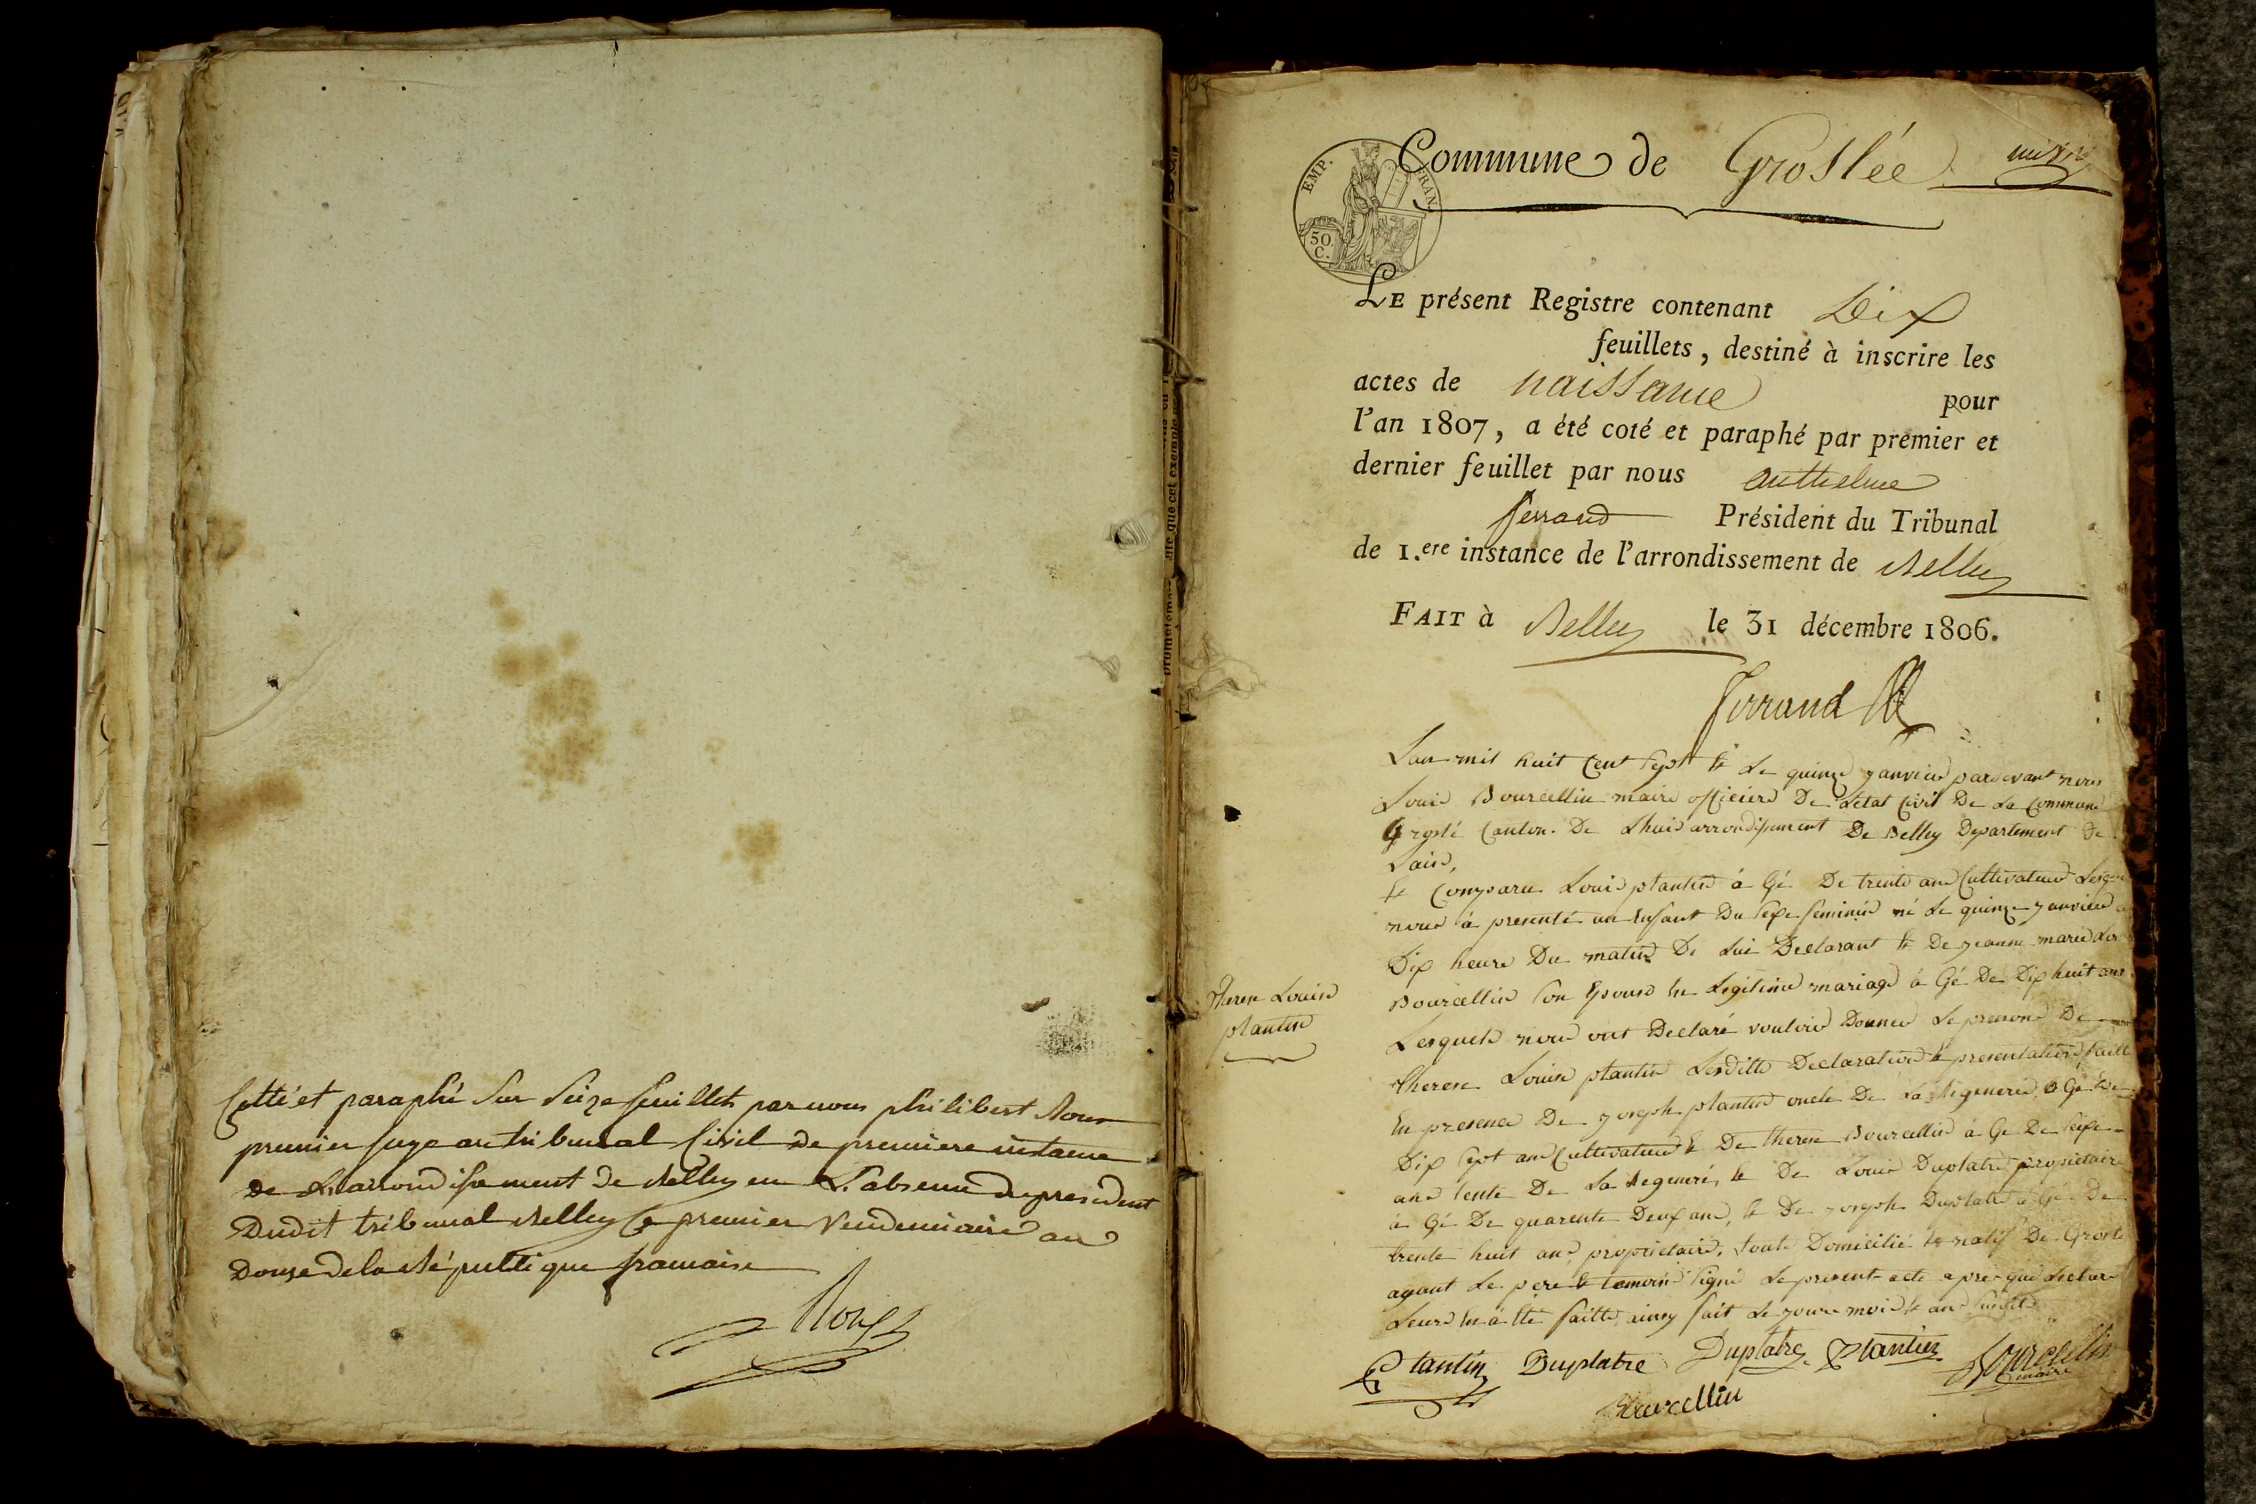 Cotté et paraphé sur seize feuillets par nous philibert Roux
premier juge au tribunal Civil de premiere instance
de L'arrondissement de Belley en L'absence du president
Dudit tribunal Belley Ce premier Vendemiaire an
Douze de la République francaise
Roux
Commune de Groslée
EMP. FRAN.
50 C.
LE présent Registre contenant Dix
feuillets, destiné à inscrire les
actes de naissance pour
l'an 1807, a été coté et paraphé par premier et
dernier feuillet par nous anthelme
ferrand Président du Tribunal
de 1.ere instance de l'arrondissement de Belley
FAIT à Belley le 31 décembre 1806.
ferrand
Lan mil huit Cent Sept & Le quinze janvier pardevant nous
Louis Bourcellin maire officiere De Létat Civil De La Commune
Groslé Canton De Lhuis arrondissement De Belley Departement De
Lain,
Et Comparu Louis plantin á Gé De trente ans Cultivateur Lequel
nous á presenté un Enfant Du Sexe feminin né Le quinze janvier á
Dix heure Du matin De Lui Declarant & De jeanne marie
Bourcellin Son Epouse En Legitime mariage á Gé De Dix huit ans
Lesquels nous ont Declaré vouloir Donner Le prenom De
Therese Louise plantin Lesditte Declaration & presentation faitte
En presence De joseph plantin oncle De La Regenerée á Gé De
Dix Sept ans Cultivateur & De therese Bourcellin á Gé De Seize
ans tente De La Regeneré, & De Louis Duplatre propietaire
á Gé De quarente Deux ans, & De joseph Duplatre á Gé De
trente huit ans propriétaire, tout Domicilié & natif De Groslé
ayant Le pere & temoins Signé Le present acte apres que Lecture
Leurs En á Eté faitte, ainsy fait Le jour moi & an Susdit
Therese Louise
plantin
Plantin Duplatre Duplatre Plantin Bourcellin
maire
Bourcellin